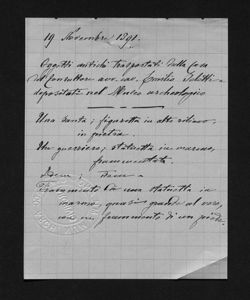 19 Novembre 1891.
Oggetti antichi trasportati dalla Casa
del Consultore avv. cav. Emilio
depositate nel Museo archeologico
Una santa; figuretta in alto rilievo
in pietra.
Un guerriero; statuetta in marmo,
frammentata.
Idem; Idem
Frammento di una statuetta in
marmo, quasi grande al vero,
con frammento di un piede